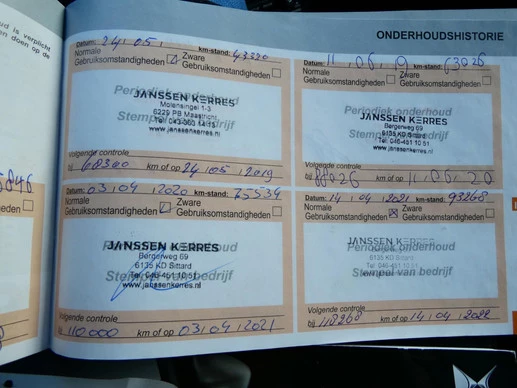 d is verplicht
en doen op de
5846
den
ONDERHOUDSHISTORIE
Datum: 24, 05, km-stand: 43320
Normale Gebruiksomstandigheden Zware Gebruiksomstandigheden
Periodiek onderhoud
JANSSEN KERRES
Molensingel 1-3
6229 PB Maastricht
Stempel van bedrijf
www.janssenkerres.nl
Volgende controle
bij 68300 km of op 24, 05, 2019
Datum: 11, 06, 19 km-stand: 63026
Normale Gebruiksomstandigheden Zware Gebruiksomstandigheden
Periodiek onderhoud
JANSSEN KERRES
Bergerweg 69
6135 KD Sittard
Stempel van bedrijf
Tel: 046-461 10 51
www.janssenkerres.nl
Volgende controle
bij 88026 km of op 11, 06, 20
Datum: 03, 04, 2020 km-stand: 75534
Normale Gebruiksomstandigheden Zware Gebruiksomstandigheden
Periodiek onderhoud
JANSSEN KERRES
Bergerweg 69
6135 KD Sittard
Tel: 046-461 10 51
Stempel van bedrijf
www.janssenkerres.nl
Volgende controle
bij 110.000 km of op 03, 04, 2021
Datum: 14, 04, 2021 km-stand: 93268
Normale Gebruiksomstandigheden Zware Gebruiksomstandigheden
Periodiek onderhoud
JANSSEN KERRES
Bergerweg 69
6135 KD Sittard
Tel: 046-461 10 51
Stempel van bedrijf
Volgende controle
bij 118268 km of op 14, 04, 2022